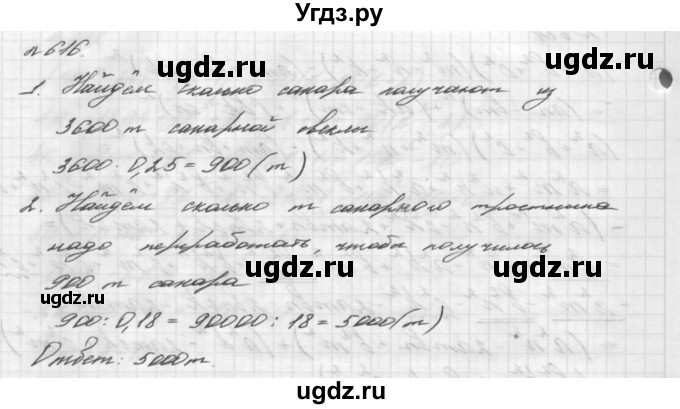 Угдз.ру
№ 616.
ugdz.ru ugdz.ru
1. Найдём сколько сахара получают из
3600 т сахарной свеклы
3600 · 0,25 = 900 (т)
ugdz.ru ugdz.ru
2. Найдём сколько т сахарного тростника
надо переработать, чтобы получилось
900 т сахара
ugdz.ru ugdz.ru
900 : 0,18 = 90000 : 18 = 5000 (т)
Ответ: 5000 т.
ugdz.ru ugdz.ru
ugdz.ru